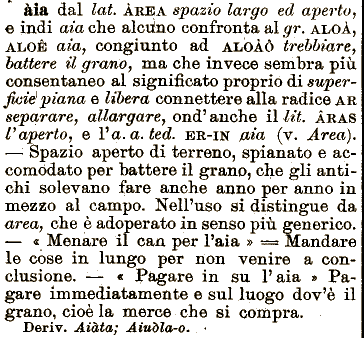 àia dal lat. ÀREA spazio largo ed aperto,
e indi aia che alcuno confronta al gr. ALOÀ,
ALOÊ aia, congiunto ad ALOÀÒ trebbiare,
battere il grano, ma che invece sembra più
consentaneo al significato proprio di super-
ficie piana e libera connettere alla radice AR
separare, allargare, ond'anche il lit. ÂRAS
l'aperto, e l'a. a. ted. ER-IN aia (v. Area).
— Spazio aperto di terreno, spianato e ac-
comòdato per battere il grano, che gli anti-
chi solevano fare anche anno per anno in
mezzo al campo. Nell'uso si distingue da
area, che è adoperato in senso più generico.
— « Menare il can per l'aia » = Mandare
le cose in lungo per non venire a con-
clusione. — « Pagare in su l'aia » Pa-
gare immediatamente e sul luogo dov'è il
grano, cioè la merce che si compra.
Deriv. Aiàta; Aiuòla-o.